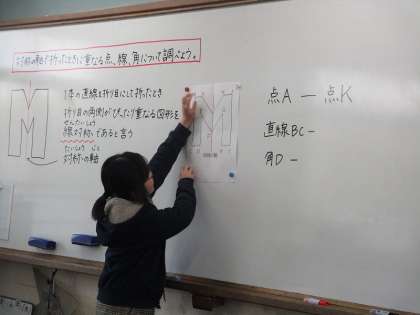 対称の軸で折ったときに重なる点、線、角について調べよう。
1本の直線を折り目にして折ったとき
折り目の両側がぴったり重なる図形を
せんたいしょう
線対称であると言う
たいしょう じく
対称の軸
点A ー 点K
直線BC ー
角D ー